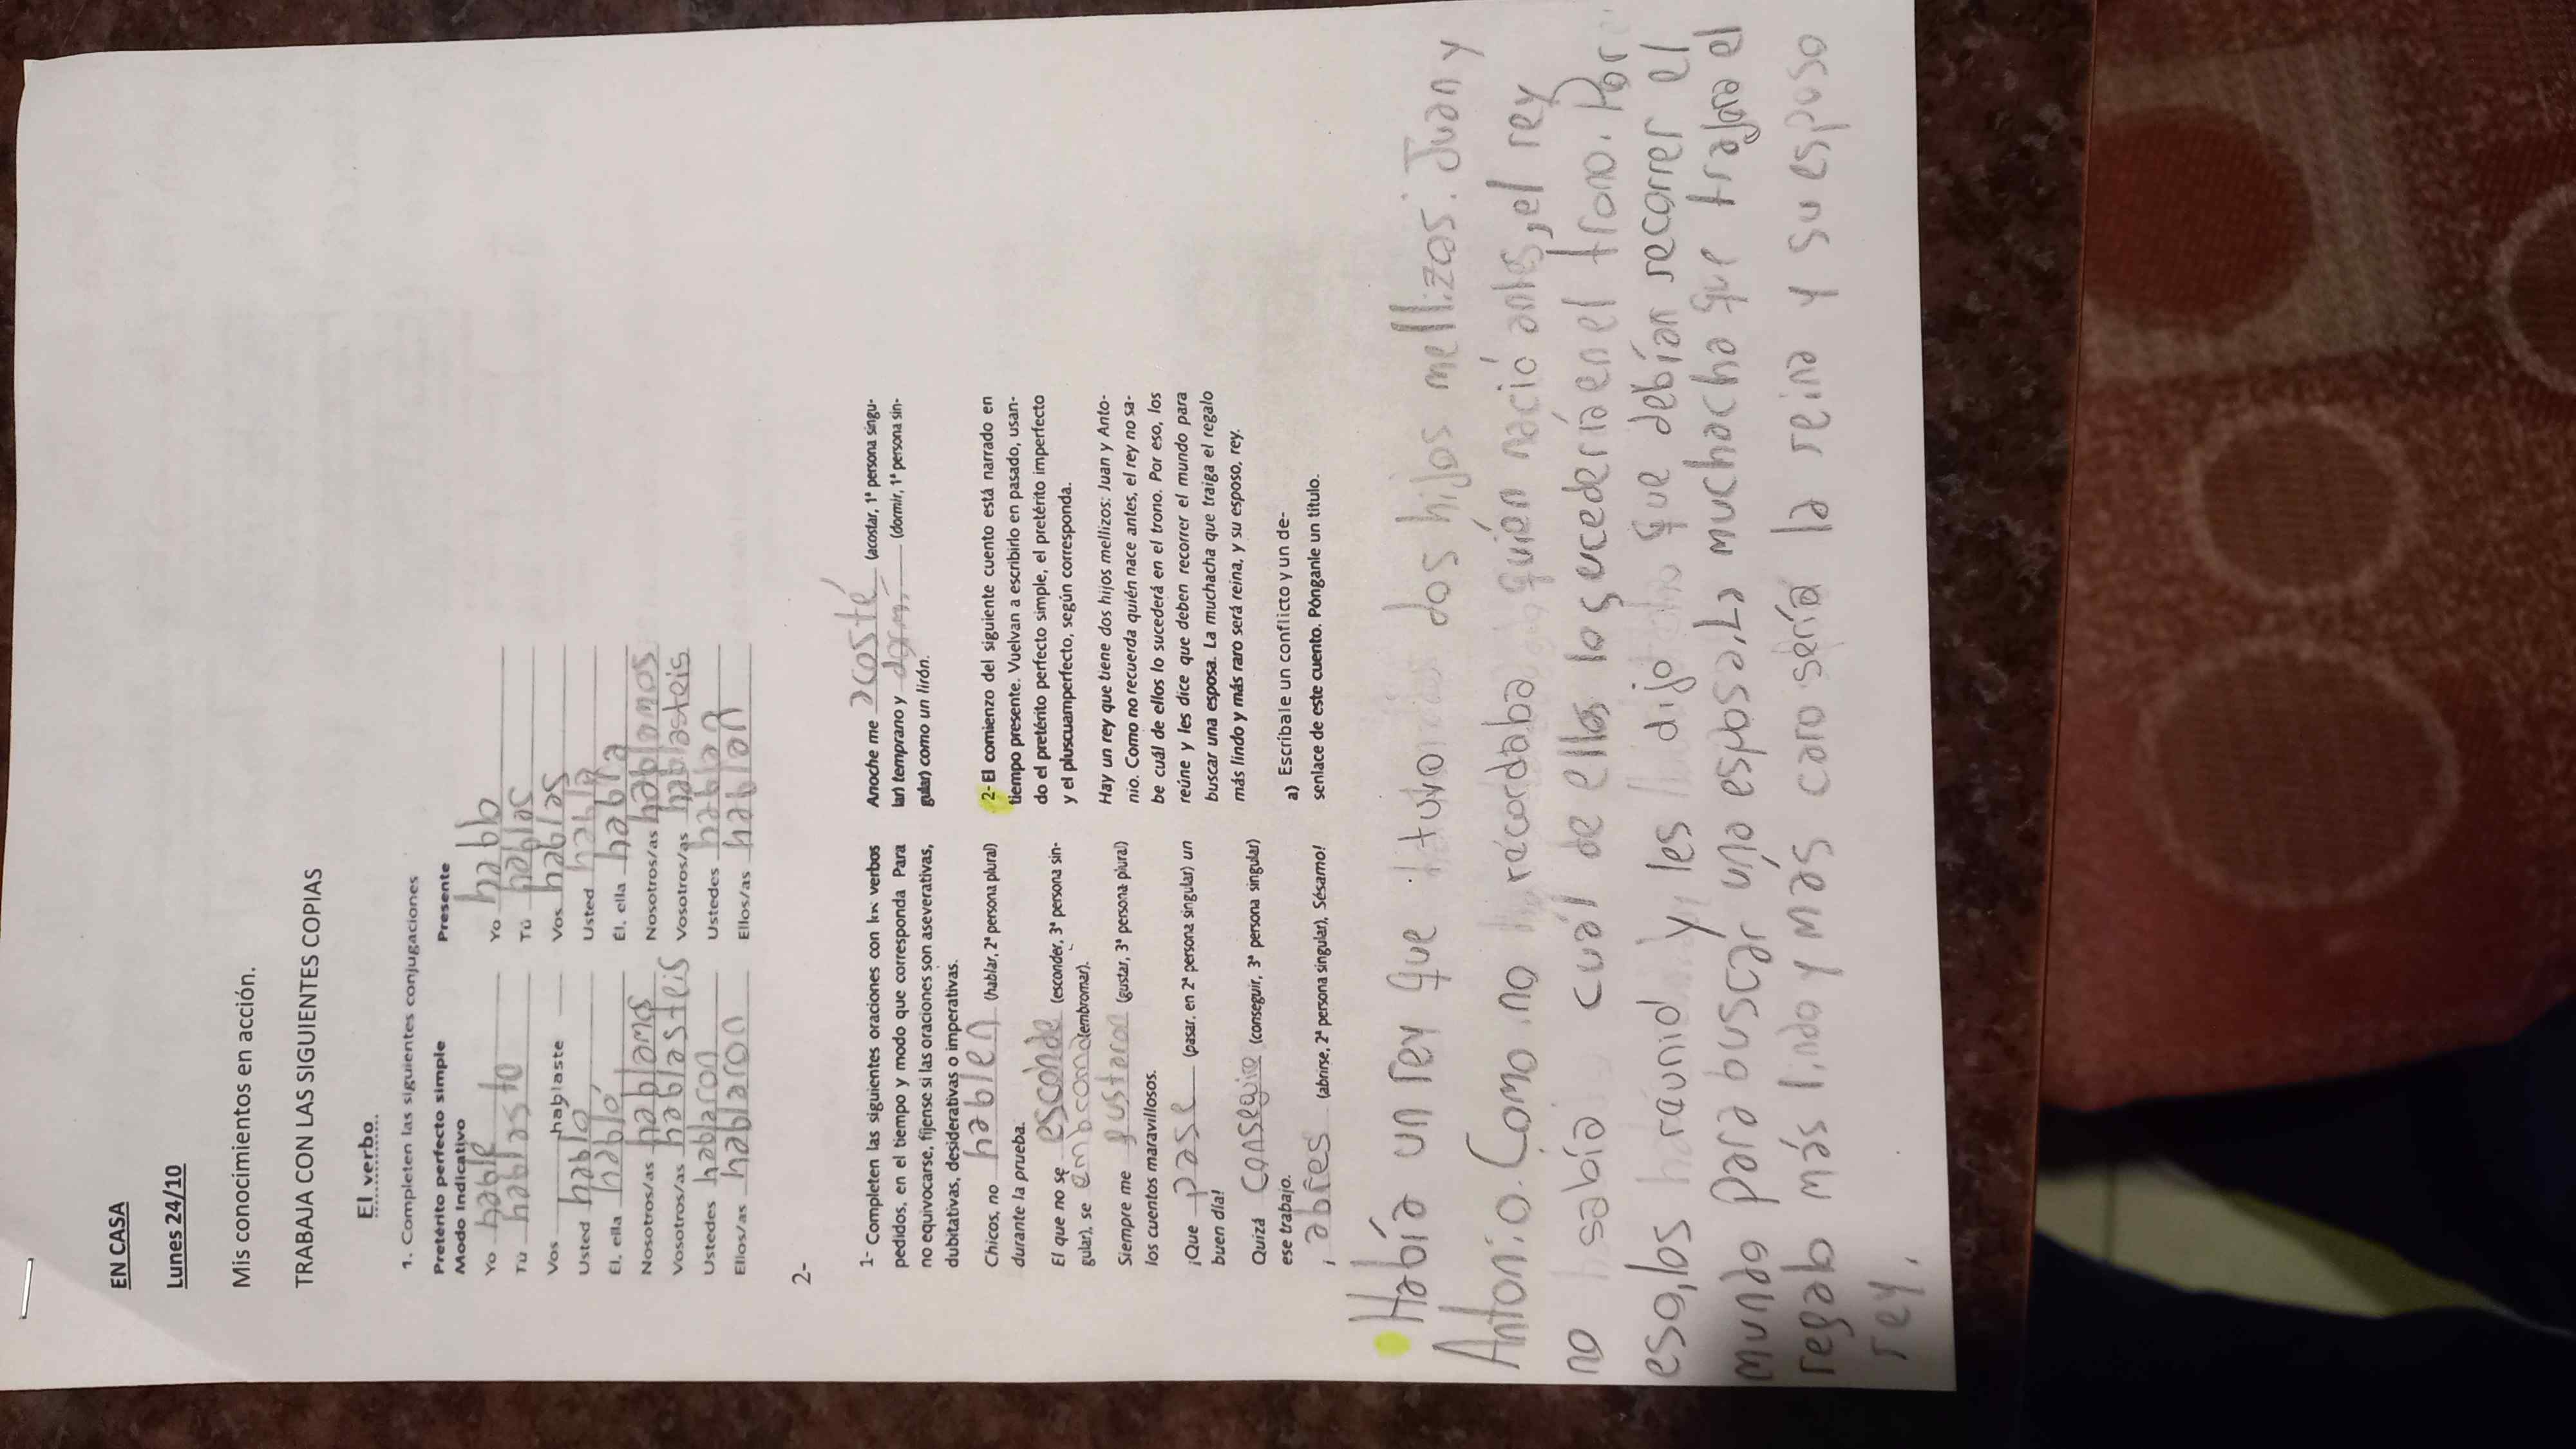 EN CASA
Lunes 24/10
Mis conocimientos en acción.
TRABAJA CON LAS SIGUIENTES COPIAS
El verbo
1. Completen las siguientes conjugaciones
Pretérito perfecto simple
Modo Indicativo
Yo hable
Tú hablaste
Vos hablaste
Usted habló
El, ella habló
Nosotros/as hablamos
Vosotros/as hablasteis
Ustedes hablaron
Ellos/as hablaron
Presente
Yo hablo
Tú hablas
Vos hablas
Usted habla
El, ella habla
Nosotros/as hablamos
Vosotros/as hablasteis
Ustedes hablan
Ellos/as hablan
2-
1- Completen las siguientes oraciones con los verbos
pedidos, en el tiempo y modo que corresponda. Para
no equivocarse, fíjense si las oraciones son aseverativas,
dubitativas, desiderativas o imperativas.
Chicos, no hablen (hablar, 2ª persona plural)
durante la prueba.
El que no se esconde (esconder, 3ª persona sin-
gular), se (embromar).
Siempre me gustaron (gustar, 3ª persona plural)
los cuentos maravillosos.
¡Que pase (pasar, en 2ª persona singular) un
buen día!
Quizá (conseguir, 3ª persona singular)
ese trabajo.
¡ abres (abrirse, 2ª persona singular), Sésamo!
Anoche me acosté (acostar, 1ª persona singu-
lar) temprano y dormí (dormir, 1ª persona sin-
gular) como un lirón.
2- El comienzo del siguiente cuento está narrado en
tiempo presente. Vuelvan a escribirlo en pasado, usan-
do el pretérito perfecto simple, el pretérito imperfecto
y el pluscuamperfecto, según corresponda.
Hay un rey que tiene dos hijos mellizos: Juan y Anto-
nio. Como no recuerda quién nace antes, el rey no sa-
be cuál de ellos lo sucederá en el trono. Por eso, los
reúne y les dice que deben recorrer el mundo para
buscar una esposa. La muchacha que traiga el regalo
más lindo y más raro será reina, y su esposo, rey.
a) Escríbale un conflicto y un de-
senlace de este cuento. Pónganle un título.
Había un rey que tuvo dos hijos mellizos: Juan y
Antonio. Como no recordaba quién nació antes, el rey
no sabía cuál de ellos los sucedería en el trono. Por
eso, los reunió y les dijo que debían recorrer el
mundo para buscar una esposa. La muchacha que trajara el
regalo más lindo y más caro sería la reina y su esposo
rey.